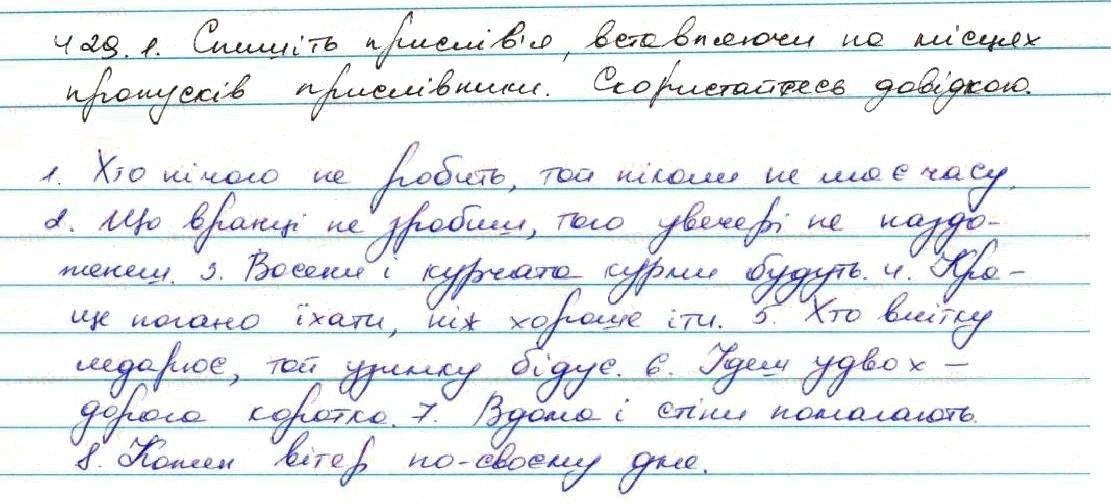 429. 1. Спишіть прислів'я, вставляючи на місцях
пропусків прислівники. Скористайтесь довідкою.
1. Хто нічого не робить, той ніколи не має часу.
2. Що вранці не зробиш, того увечері не наздо-
женеш. 3. Восени і курчата курми будуть. 4. Кра-
ще погано їхати, ніж хороше іти. 5. Хто влітку
ледарює, той узимку бідує. 6. Ідем удвох –
дорога коротка. 7. Вдома і стіни помагають.
8. Кожен вітер по-своєму дме.